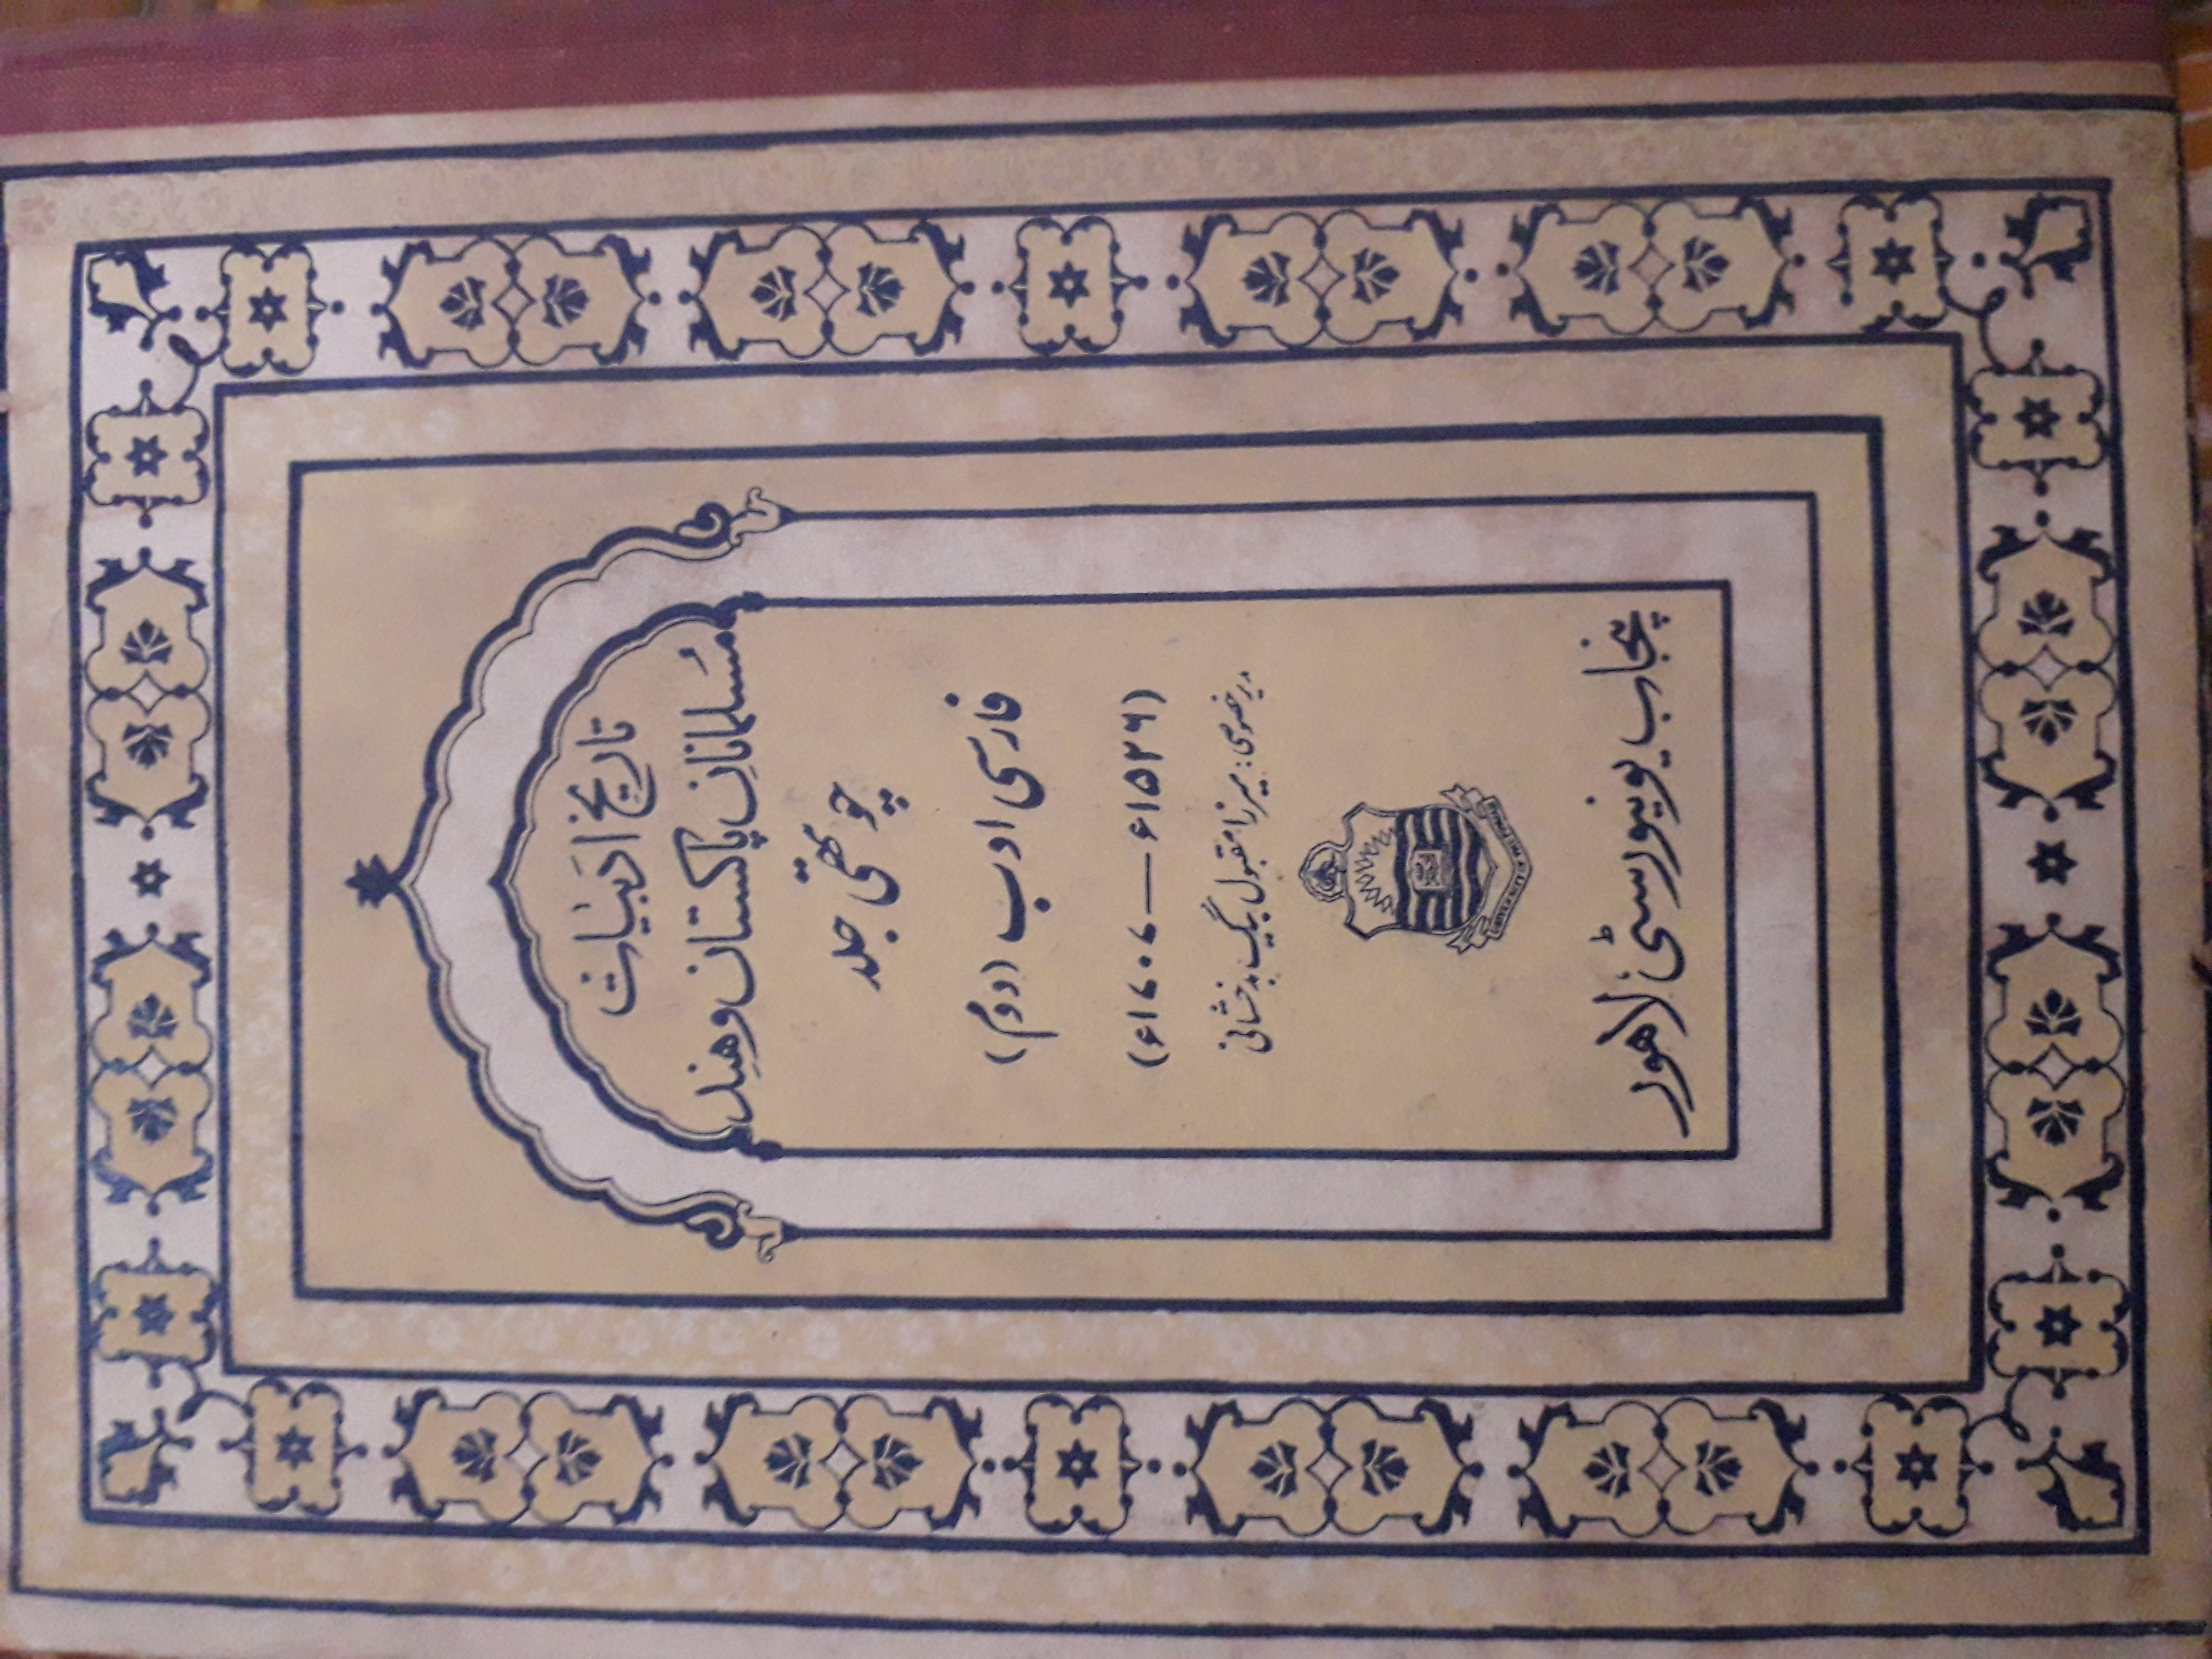 تاریخ ادبیات
مسلمانانِ پاکستان و هند
چوتھی جلد
فارسی ادب (دوم)
(۱۵۲۶ء — ۱۷۰۷ء)
مدیر خصوصی: میرزا مقبول بیگ بدخشانی
پنجاب یونیورسٹی، لاہور